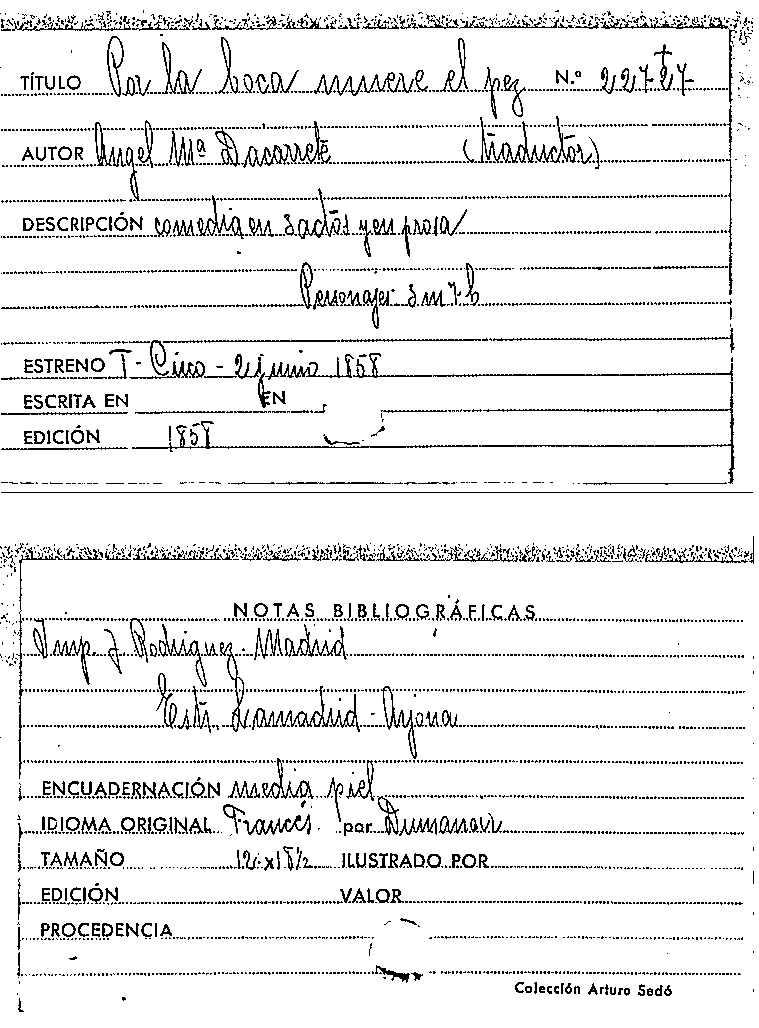 TÍTULO Por la boca muere el pez N.º 227-27-
AUTOR Angel Mª Dacarrete (traductor)
DESCRIPCIÓN comedia en 3 actos y en prosa
Personajes 3 m 7 h
ESTRENO T- Circo - 2 junio 1858
ESCRITA EN EN
EDICIÓN 1858
NOTAS BIBLIOGRÁFICAS
Imp. J. Rodriguez. Madrid
Estr. Lamadrid - Arjona
ENCUADERNACIÓN media piel
IDIOMA ORIGINAL Francés. por Dumanoir
TAMAÑO 12 x 18½ ILUSTRADO POR
EDICIÓN VALOR
PROCEDENCIA
Colección Arturo Sedó